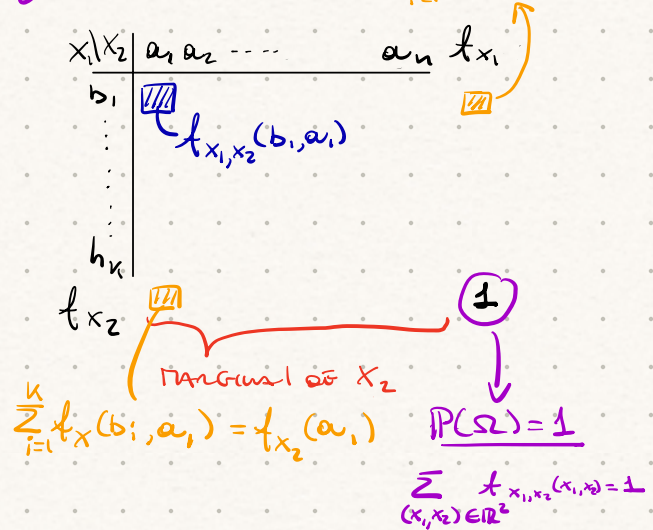 x₁\x₂ a₁ a₂ ---- aₙ fx₁
b₁
fx₁,x₂(b₁,a₁)
bₖ
fx₂ 1
MARGINAL OF X₂
K
∑ fx(bi,a₁) = fx₂(a₁)
i=1
P(Ω)=1
∑ fx₁,x₂(x₁,x₂)=1
(x₁,x₂)∈ℝ²